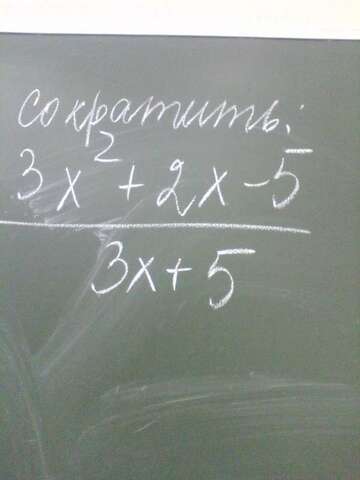 сократить:
3x² + 2x - 5
3x + 5